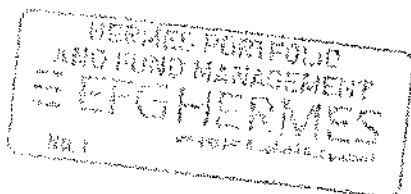 HERMES PORTFOLIO
AND FUND MANAGEMENT
EFG HERMES
NR. 1